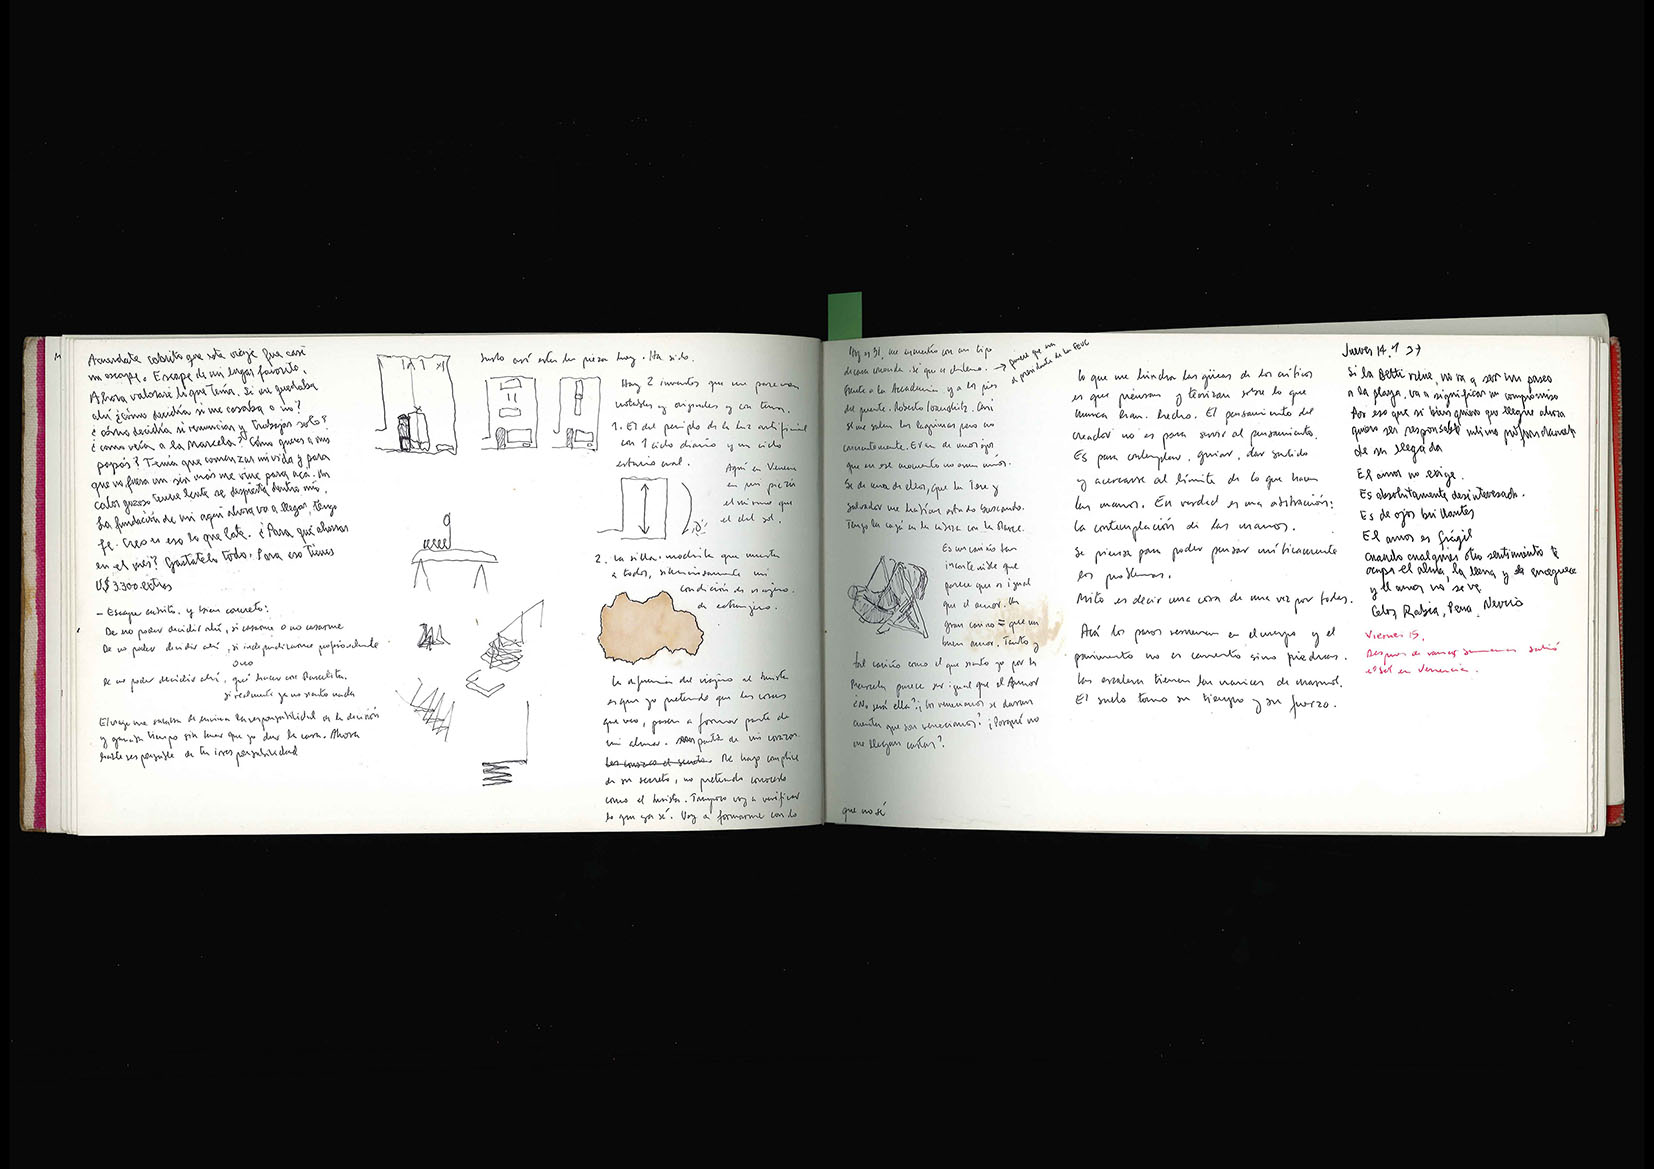 Acuerdate cabrito que este viaje fue casi
un escape. Escape de mi lugar favorito.
Ahora valorare lo que tenia. Si me quedaba
ahí ¿cómo decidía si me casaba o no?
¿cómo decidía si renunciar y trabajar solo?
¿como veía a la Marcela? ¿Cómo quieres a sus
papás? Tenía que comenzar mi vida y para
que no fuera un sin más me vine para acá. Un
calor gozoso tenue lento se despierta dentro mío.
La fundación de mi aquí ahora va a llegar, tengo
fe. Creo es eso lo que late. ¿Para qué ahorras
en el mes? Gastatelo todo. Para eso tienes
U$ 3300 extras
– Escape cabrito. y bien concreto:
De no poder decidir ahí, si casarme o no casarme
De no poder decidir ahí, si independizarme profesionalmente
o no
De no poder decidir ahí, qué hacer con Marcelita.
si realmente ya no siento nada
El viaje me
y ganaba tiempo sin tener que yo dar la cara. Ahora
hazte responsable de tu irresponsabilidad
Justo así esta la pieza hoy. Ha sido.
Hay 2 inventos que me parecen
notables y originales y con tema.
1. El del periplo de la luz artificial
con 1 ciclo diario y un ciclo
estacional.
Aquí en Venecia
en mi pieza
el mismo que
el del sol.
2. La silla-mochila que muestra
a todos, silenciosamente mi
condición de viajero.
de extranjero.
La diferencia del viajero al turista
es que yo pretendo que las cosas
que veo, pasen a formar parte de
mi alma. parte de mi corazón.
Me hago complice
de su secreto, no pretendo conocerlo
como el turista. Tampoco voy a verificar
lo que ya sé. Voy a formarme con lo
que no sé
Hoy es 31, me encuentro con un tipo
de cara conocida. Sé que es chileno.
→ parece que un
ex presidente de la FEUC
frente a la Accademia y a los pies
del puente. Roberto Casi
se me salen las lagrimas pero no
concientemente. Era de unos ojos
que en ese momento no eran míos.
Se de uno de ellos, que la Tere y
Salvador me habían estado buscando.
Es un cariño tan
increíble que
parece que es igual
que el amor. Un
gran cariño = que un
buen amor. Tanto y
tal cariño como el que siento yo por la
Marcela parece ser igual que el Amor
¿No será ella? ¿Los venecianos se darán
cuenta que son venecianos? ¿Porqué no
me llegan cartas?
Lo que me hincha las guevas de los criticos
es que piensan y teorizan sobre lo que
nunca han hecho. El pensamiento del
creador no es para servir al pensamiento.
Es para contemplar, guiar, dar sentido
y acercarse al límite de lo que hacen
las manos. En verdad es una abstracción:
la contemplación de las manos.
Se piensa para poder pensar míticamente
los problemas.
Mito es decir una cosa de una vez por todas.
Acá los pasos resuenan en el cuerpo y el
pavimento no es cemento sino piedras.
Las escaleras tienen las narices de marmol.
El suelo tomo su tiempo y su fuerzo.
Jueves 14.1
Si la Betti viene, no va a ser un paseo
a la playa, va a significar un compromiso
Por eso que si bien quiero que llegue ahora
quiero ser responsable intimo profundamente
de su llegada
El amor no exige.
Es absolutamente desinteresado.
Es de ojos brillantes
El amor es frágil
cuando cualquier otro sentimiento te
ocupa el alma, la llena y enceguece
y el amor no se ve
Celos, Rabia, Pena, Nervio
Viernes 15.
Despues de varias semanas salió
el sol en Venecia.